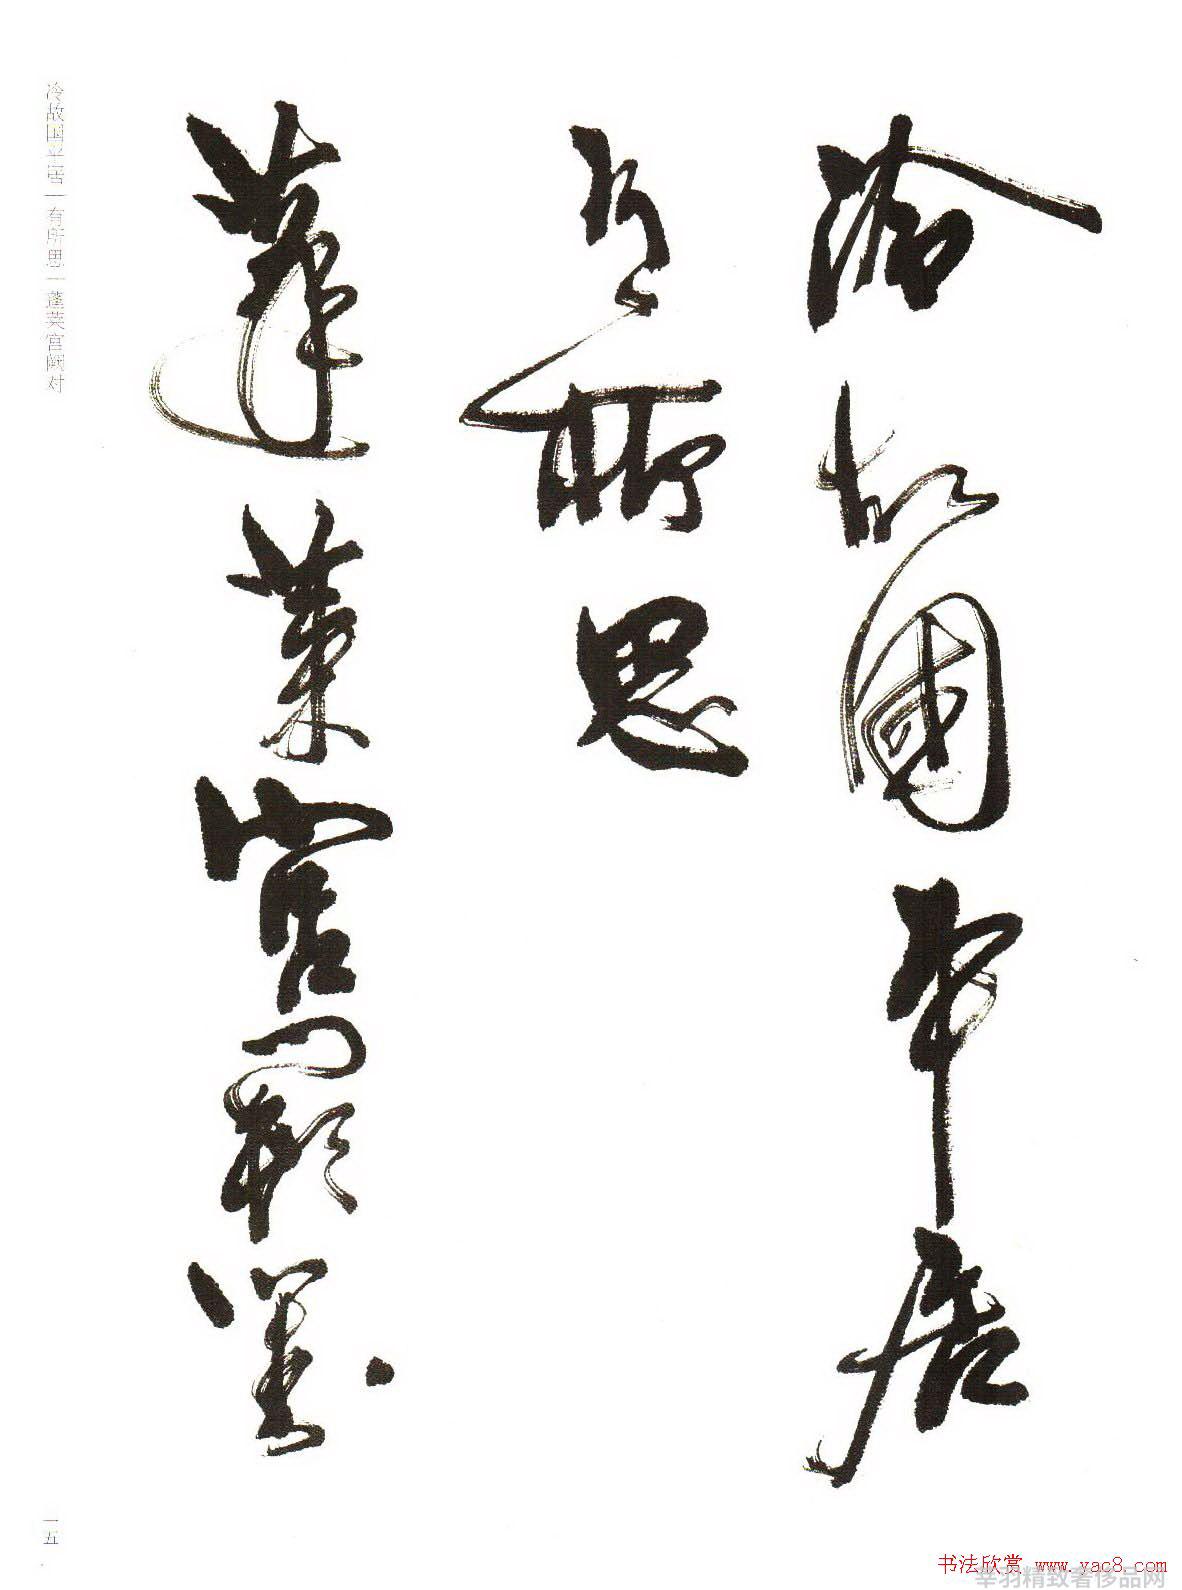 冷故國平居
有所思
蓬萊宮闕對
冷故国平居｜有所思｜蓬莱宫阙对
一五
书法欣赏 www.yac8.com
幸羽精致奢侈品网